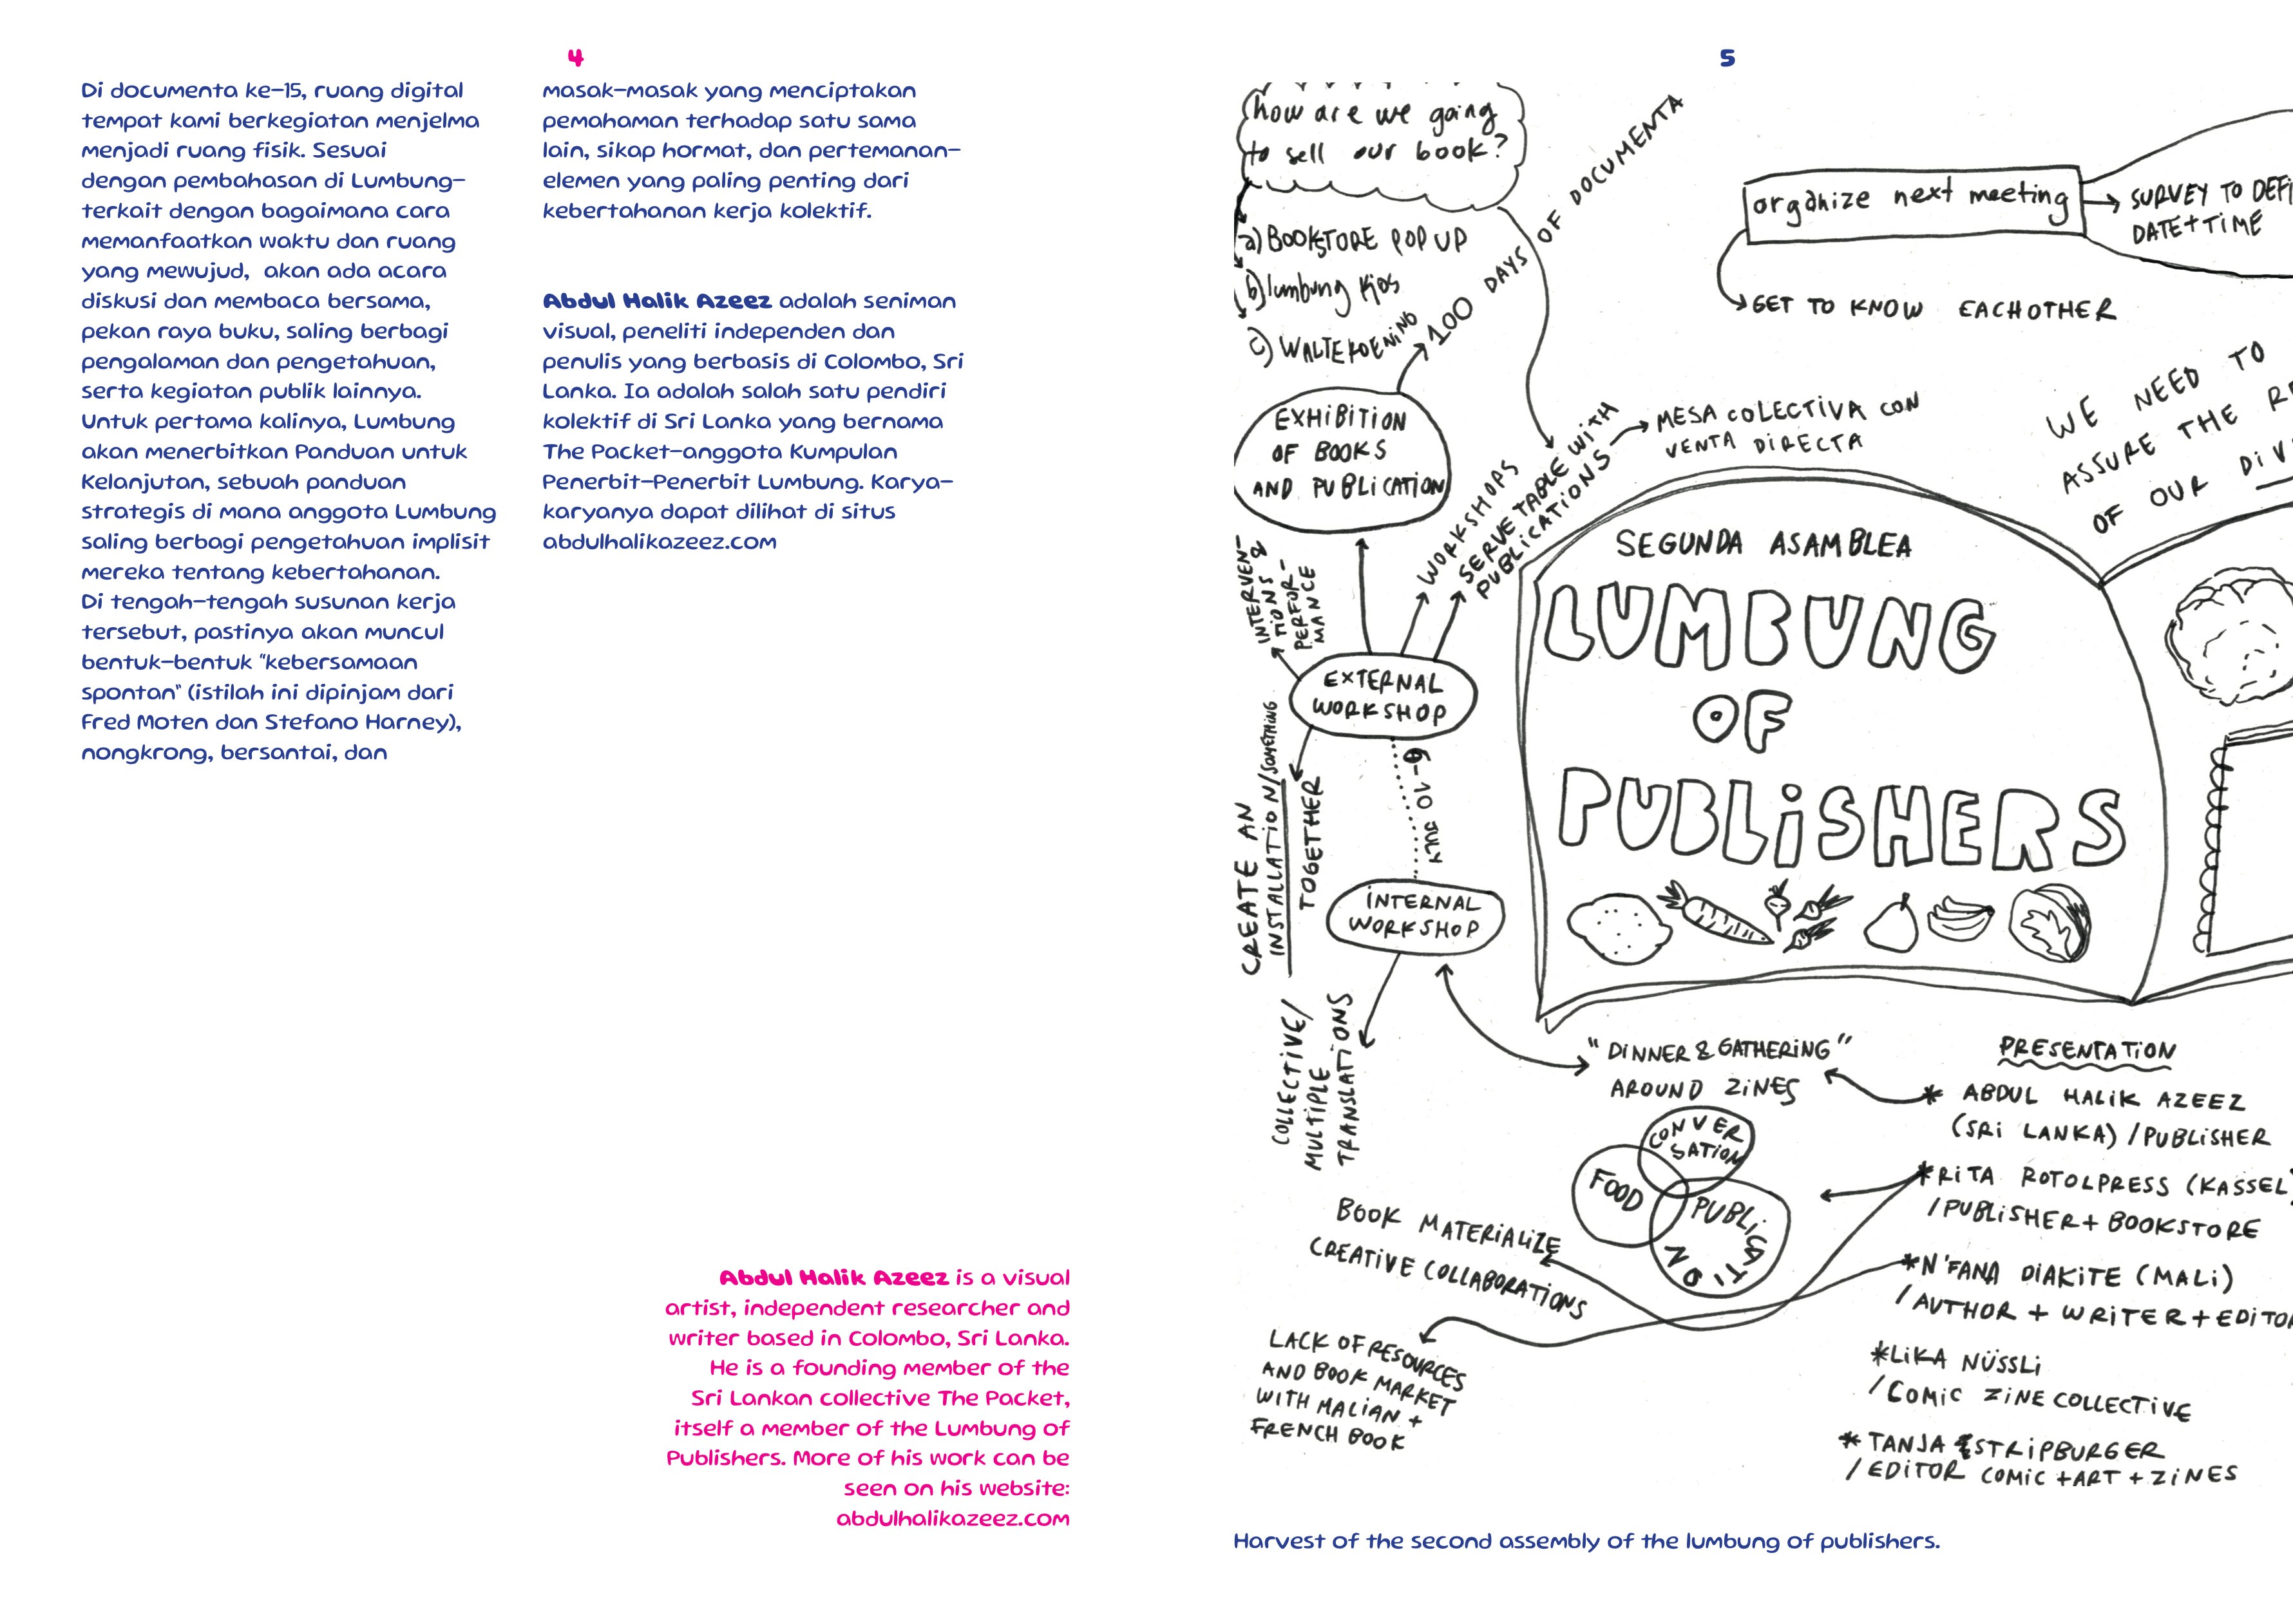 4
Di documenta ke-15, ruang digital
tempat kami berkegiatan menjelma
menjadi ruang fisik. Sesuai
dengan pembahasan di Lumbung-
terkait dengan bagaimana cara
memanfaatkan waktu dan ruang
yang mewujud,  akan ada acara
diskusi dan membaca bersama,
pekan raya buku, saling berbagi
pengalaman dan pengetahuan,
serta kegiatan publik lainnya.
Untuk pertama kalinya, Lumbung
akan menerbitkan Panduan untuk
Kelanjutan, sebuah panduan
strategis di mana anggota Lumbung
saling berbagi pengetahuan implisit
mereka tentang kebertahanan.
Di tengah-tengah susunan kerja
tersebut, pastinya akan muncul
bentuk-bentuk "kebersamaan
spontan" (istilah ini dipinjam dari
Fred Moten dan Stefano Harney),
nongkrong, bersantai, dan
masak-masak yang menciptakan
pemahaman terhadap satu sama
lain, sikap hormat, dan pertemanan-
elemen yang paling penting dari
kebertahanan kerja kolektif.
Abdul Halik Azeez adalah seniman
visual, peneliti independen dan
penulis yang berbasis di Colombo, Sri
Lanka. Ia adalah salah satu pendiri
kolektif di Sri Lanka yang bernama
The Packet-anggota Kumpulan
Penerbit-Penerbit Lumbung. Karya-
karyanya dapat dilihat di situs
abdulhalikazeez.com
Abdul Halik Azeez is a visual
artist, independent researcher and
writer based in Colombo, Sri Lanka.
He is a founding member of the
Sri Lankan collective The Packet,
itself a member of the Lumbung of
Publishers. More of his work can be
seen on his website:
abdulhalikazeez.com
5
how are we going
to sell our book?
a) BOOKSTORE POP UP
b) lumbung Kios
c) WALTERKOENING
100 DAYS OF DOCUMENTA
EXHIBITION
OF BOOKS
AND PUBLICATION
organize next meeting
SURVEY TO DEFI
DATE+TIME
GET TO KNOW EACHOTHER
WE NEED TO
ASSURE THE R
OF OUR DIV
MESA COLECTIVA CON
VENTA DIRECTA
WORKSHOPS
SERVE TABLE WITH
PUBLICATIONS
INTERVEN-
TIONS &
PERFOR-
MANCE
EXTERNAL
WORKSHOP
CREATE AN
INSTALLATION/SOMETHING
TOGETHER
6-10 JULY
INTERNAL
WORKSHOP
COLLECTIVE/
MULTIPLE
TRANSLATIONS
SEGUNDA ASAMBLEA
LUMBUNG
OF
PUBLISHERS
"DINNER & GATHERING"
AROUND ZINES
CONVER
SATION
FOOD
PUBLICATION
BOOK MATERIALIZE
CREATIVE COLLABORATIONS
LACK OF RESOURCES
AND BOOK MARKET
WITH MALIAN +
FRENCH BOOK
PRESENTATION
* ABDUL HALIK AZEEZ
(SRI LANKA) /PUBLISHER
*RITA ROTOLPRESS (KASSEL)
/PUBLISHER+ BOOKSTORE
*N'FANA DIAKITE (MALI)
/AUTHOR + WRITER+EDITOR
*LIKA NÜSSLI
/COMIC ZINE COLLECTIVE
* TANJA STRIPBURGER
/EDITOR COMIC +ART + ZINES
Harvest of the second assembly of the lumbung of publishers.